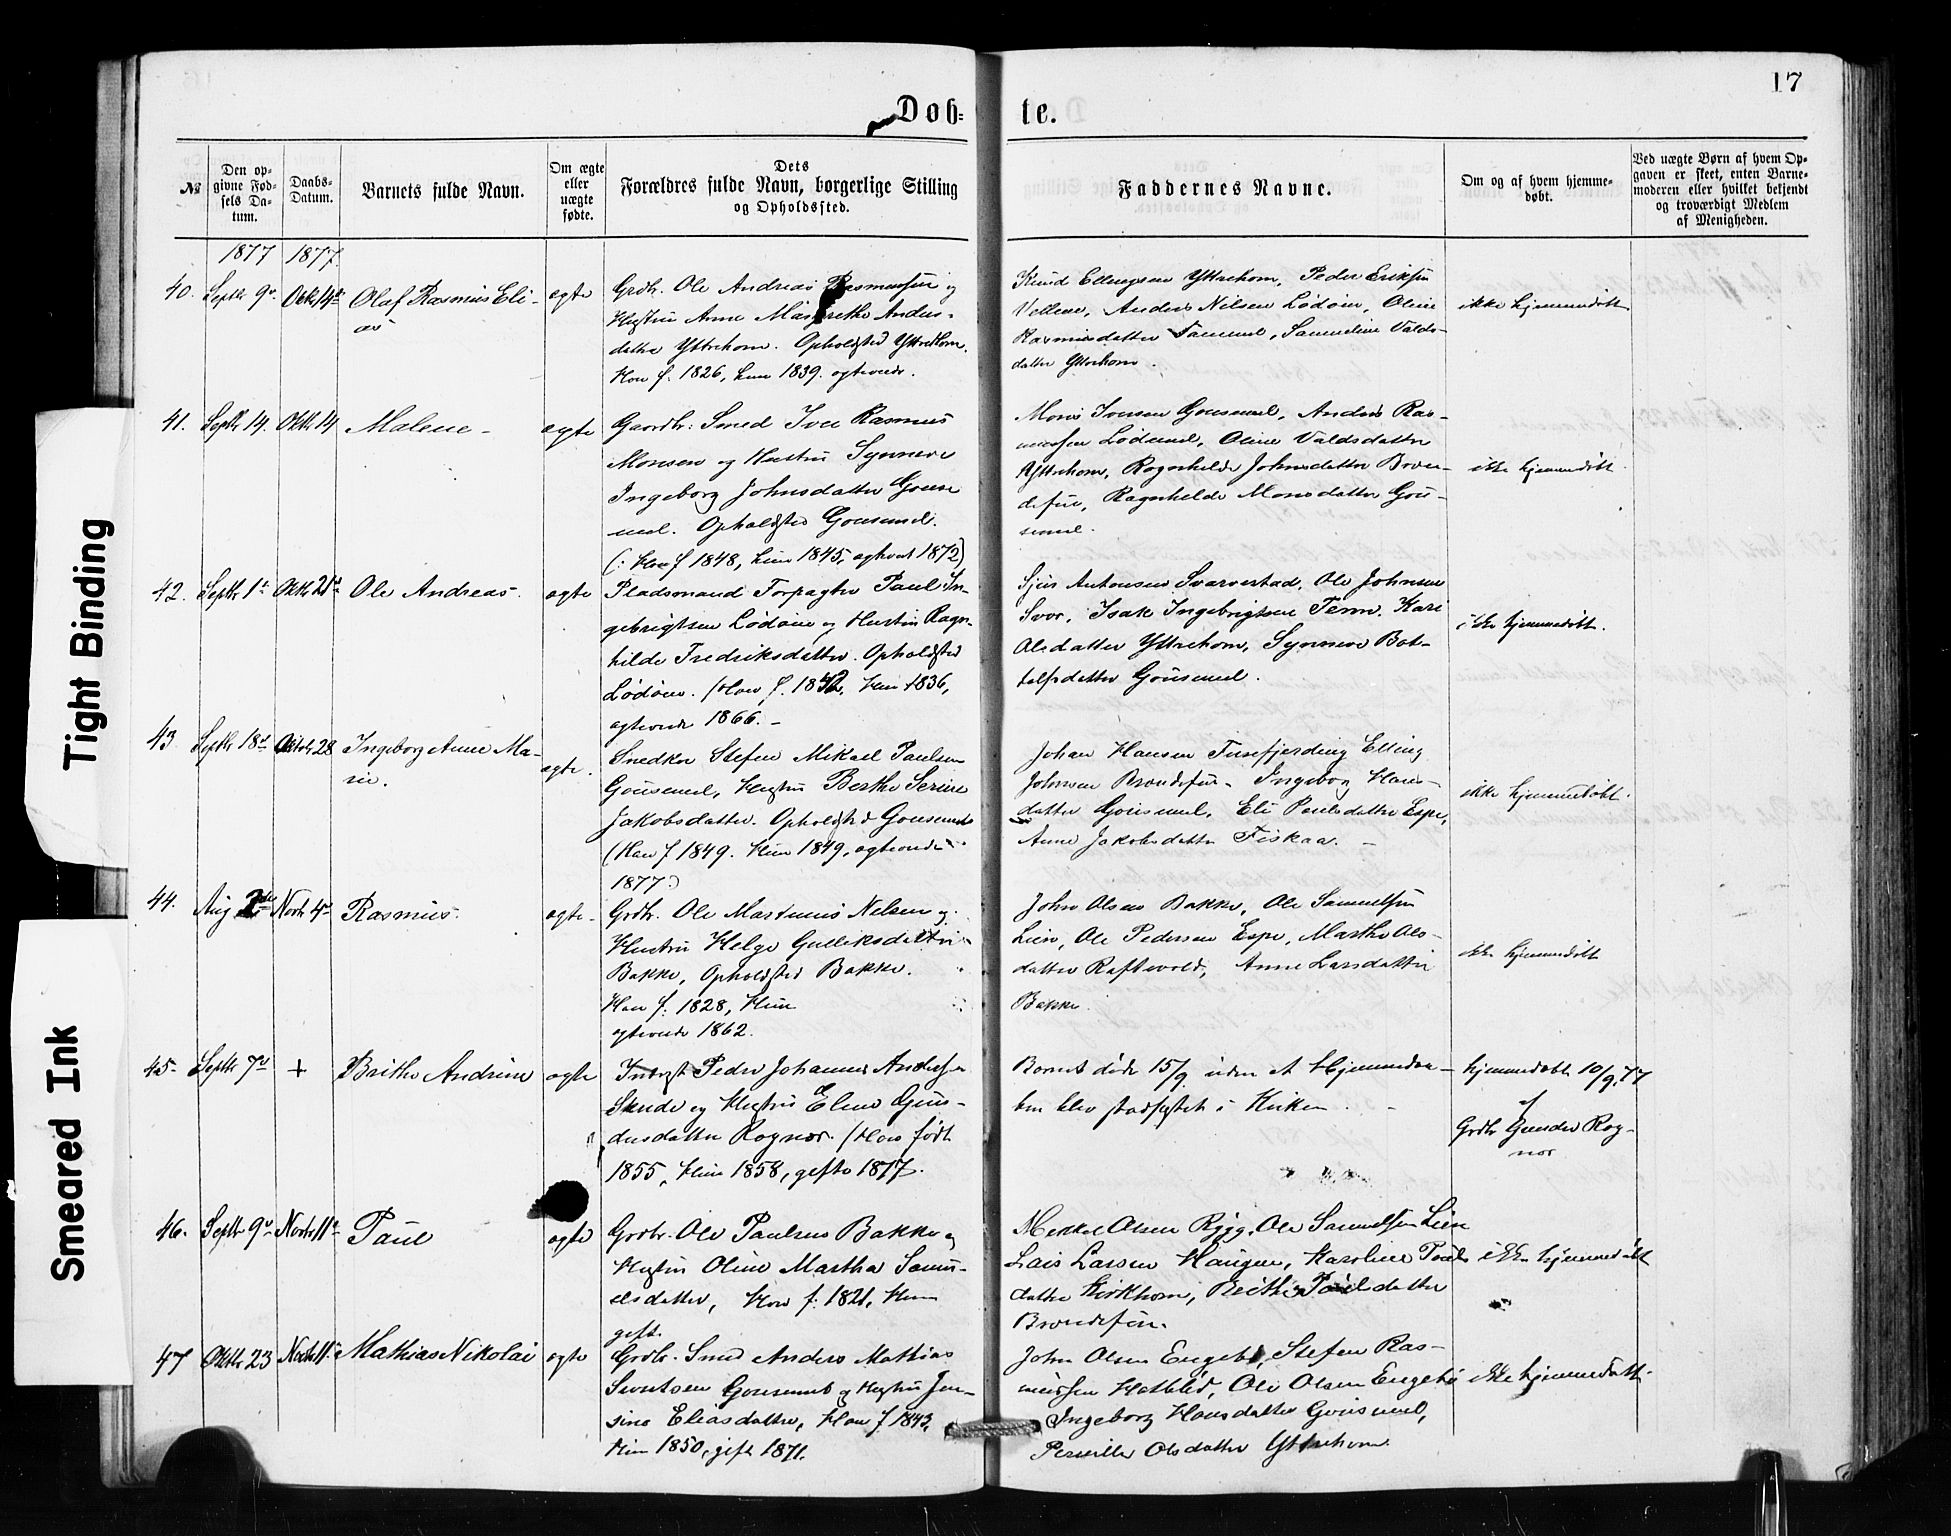 17
Døb=
te.
№
Den op-
givne Fød-
sels Da-
tum.
Daabs-
Datum.
Barnets fulde Navn.
Om ægte
eller
uægte
fødte.
Dets
Forældres fulde Navn, borgerlige Stilling
og Opholdssted.
Faddernes Navne.
Om og af hvem hjemme-
døbt.
Ved uægte Børn af hvem Op-
gaven er skeet, enten Barne-
moderen eller hvilket bekjendt
og troværdigt Medlem
af Menigheden.
1877 1877.
40. Septbr 9de Oktbr 14de Olaf Rasmus Eli-
as
ægte
Grdbr. Ole Andreas Rasmussen og
Hustru Anne Margrethe Anders-
datter Yttrehorn. Opholdssted Yttrehorn.
Han f. 1826, hun 1839. ægteviede.
Knud Ellingsen Yttrehorn, Peder Eriksen
Vellene, Anders Nilsen Lødøen, Oline
Rasmusdatter, Samueline Valds-
datter Yttrehorn.
ikke hjemmedøbt
41. Septbr 14. Oktbr 14 Malene - ægte
Gaardbr. Smed Iver Rasmus
Monsen og Hustru Synneve
Ingeborg Johnsdatter Gouse-
mel. Opholdssted Gousemel.
(: Han f 1848, hun 1845, ægteviet 1872)
Mons Iversen Gousemel, Anders Ras-
mussen Lødemel, Oline Valdsdatter
Yttrehorn, Ragnhilde Johnsdatter Bran-
defur, Ragnhilde Monsdatter Gou-
semel.
ikke hjemmedøbt.
42. Septbr 1ste Oktbr 21de Ole Andreas. ægte
Pladsmand Forpagter Paul In-
gebrigtsen Lødøen og Hustru Ragn-
hilde Fredriksdatter. Opholdssted
Lødøen. (Han f. 1842, Hun 1836,
ægteviede 1866. -
Sjur Antonsen Svarvestad, Ole Johnsen
Svor, Isak Ingebrigtsen Tenn, Kari
Olsdatter Yttrehorn, Synneve Bot-
tolfsdatter Gousemel.
ikke hjemmedøbt.
43 Septbr 18de Oktobr 28 Ingeborg Anne Ma-
rie.
ægte.
Snedker Stefen Mikael Paulsen
Gousemel, Hustru Berthe Serine
Jakobsdatter. Opholdssted Gousemel
(Han f 1849. Hun 1849, ægteviede
1877.)
Johan Hansen Tusefjerding, Elling
Johnsen Brandefur - Ingeborg Hans-
datter Gousemel, Eli Paulsdatter Espe,
Anne Jakobsdatter Fiskaa. -
ikke hjemmedøbt.
44. Aug 2de Novbr 4de Rasmus. ægte -
Grdbr. Ole Martinus Nelsen og
Hustru Helge Gulleksdatter
Bakke, Opholdssted Bakke.
Han f. 1828, Hun
ægteviede 1862.
John Olsen Bakke, Ole Samuelsen
Lien, Ole Pedersen Espe, Marthe Ols-
datter Raftevold, Anne Larsdatter
Bakke.
ikke hjemmedøbt
45. Septbr 7de + Brithe Andrine ægte
Inderst Peder Johannes Andersen
Skude og Hustru Eline Gun-
dersdatter Rognør. (Han født
1855, Hun 1858, gifte 1877.
Barnet døde 15/9 uden at Hjemmedaa-
ben blev stadfæstet i Kirken. -
hjemmedøbt 10/9.77
af
Grdbr Gunder Rog-
nør
46. Septbr 9de Novbr 11te Paul ægte
Grdbr. Ole Paulsen Bakke og
Hustru Oline Martha Samu-
elsdatter, Han f. 1821, Hun
gift
Mikkel Olsen Rygg, Ole Samuelsen Lien
Lars Larsen Haugen, Karoline Pauls
datter Kirkhorn, Brithe Paulsdatter
Brandefur.
ikke hjemmedøbt
47 Oktbr 23 Novbr 11te Mathias Nikolai ægte
Grdbr. Smed Anders Mathias
Sivertsen Gousemel og Hustru Jen-
sine Eliasdatter, Han f. 1843,
Hun 1850, gift 1871.
John Olsen Engebø, Stefen Ras-
mussen Hatleld, Ole Olsen Engebø
Ingeborg Hansdatter Gousemel,
Pernille Olsdatter Yttrehorn.
ikke hjemmedøbt.
Tight Binding
Smeared Ink